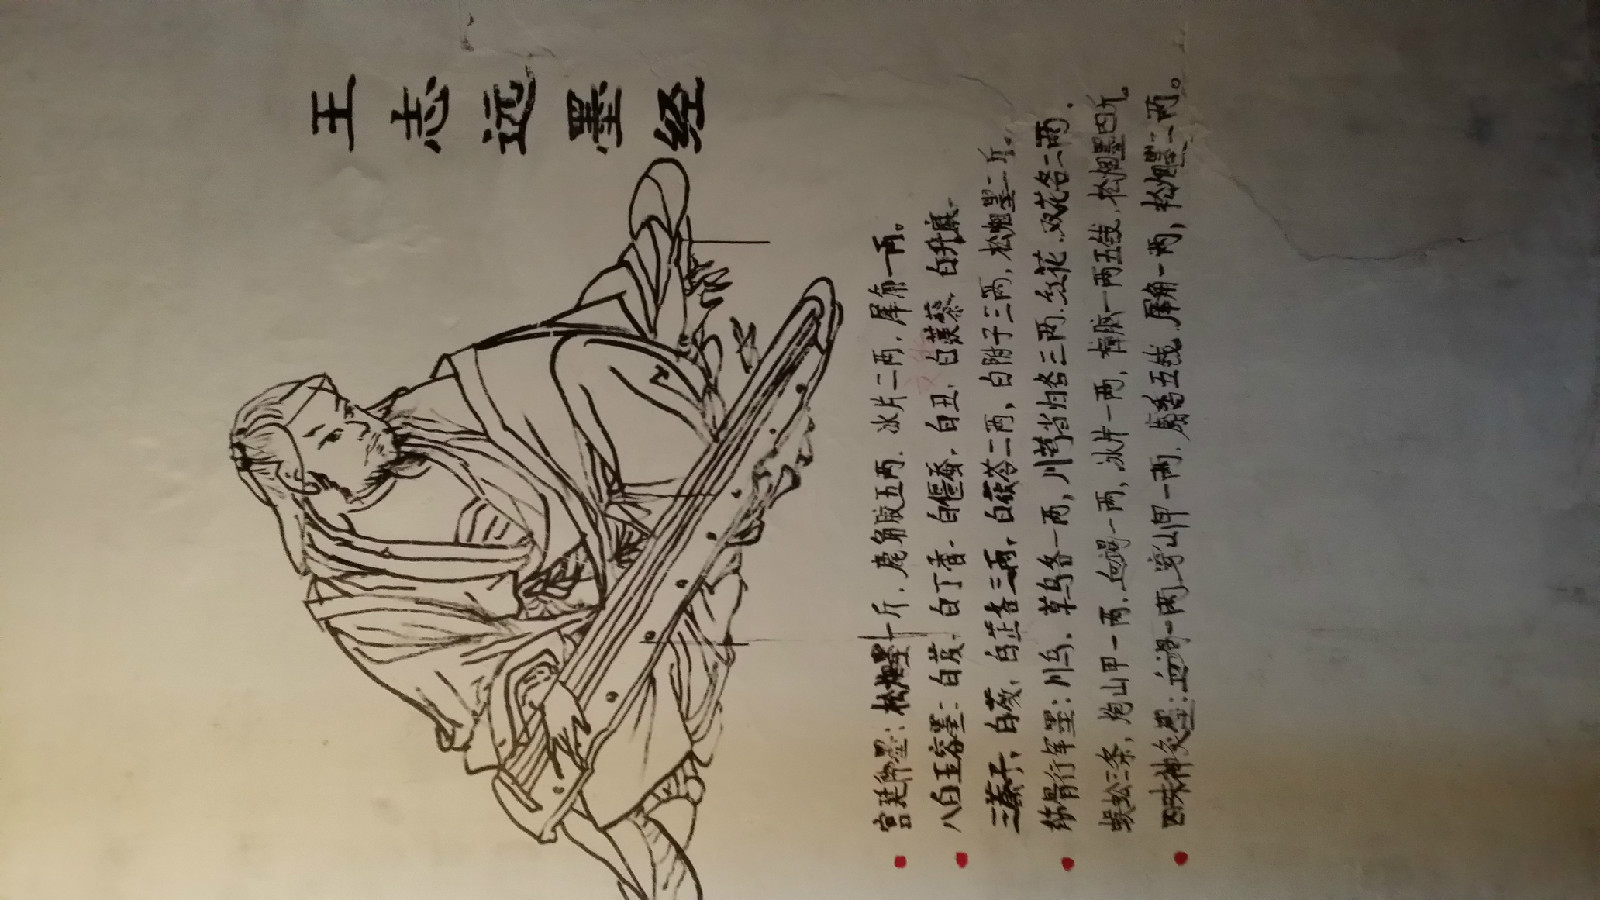 王志远墨经
宫廷御墨：松烟墨一斤．鹿角胶五两．冰片二两．犀角一两。
八白玉容墨：白芨．白丁香．白僵蚕．白丑．白蒺藜．白升麻．
三蔹子，白蔹，白芷各三两，白茯苓二两，白附子三两，松烟墨二斤。
筋骨行军墨：川乌．草乌各一两，川芎当归各三两．红花．双花各二两．
蜈蚣三条，炮山甲一两．血竭一两，冰片一两，樟脑一两五钱，松烟墨四斤。
四味神灸墨：血竭一两．穿山甲一两．麝香五钱．犀角一两，松烟墨二两。